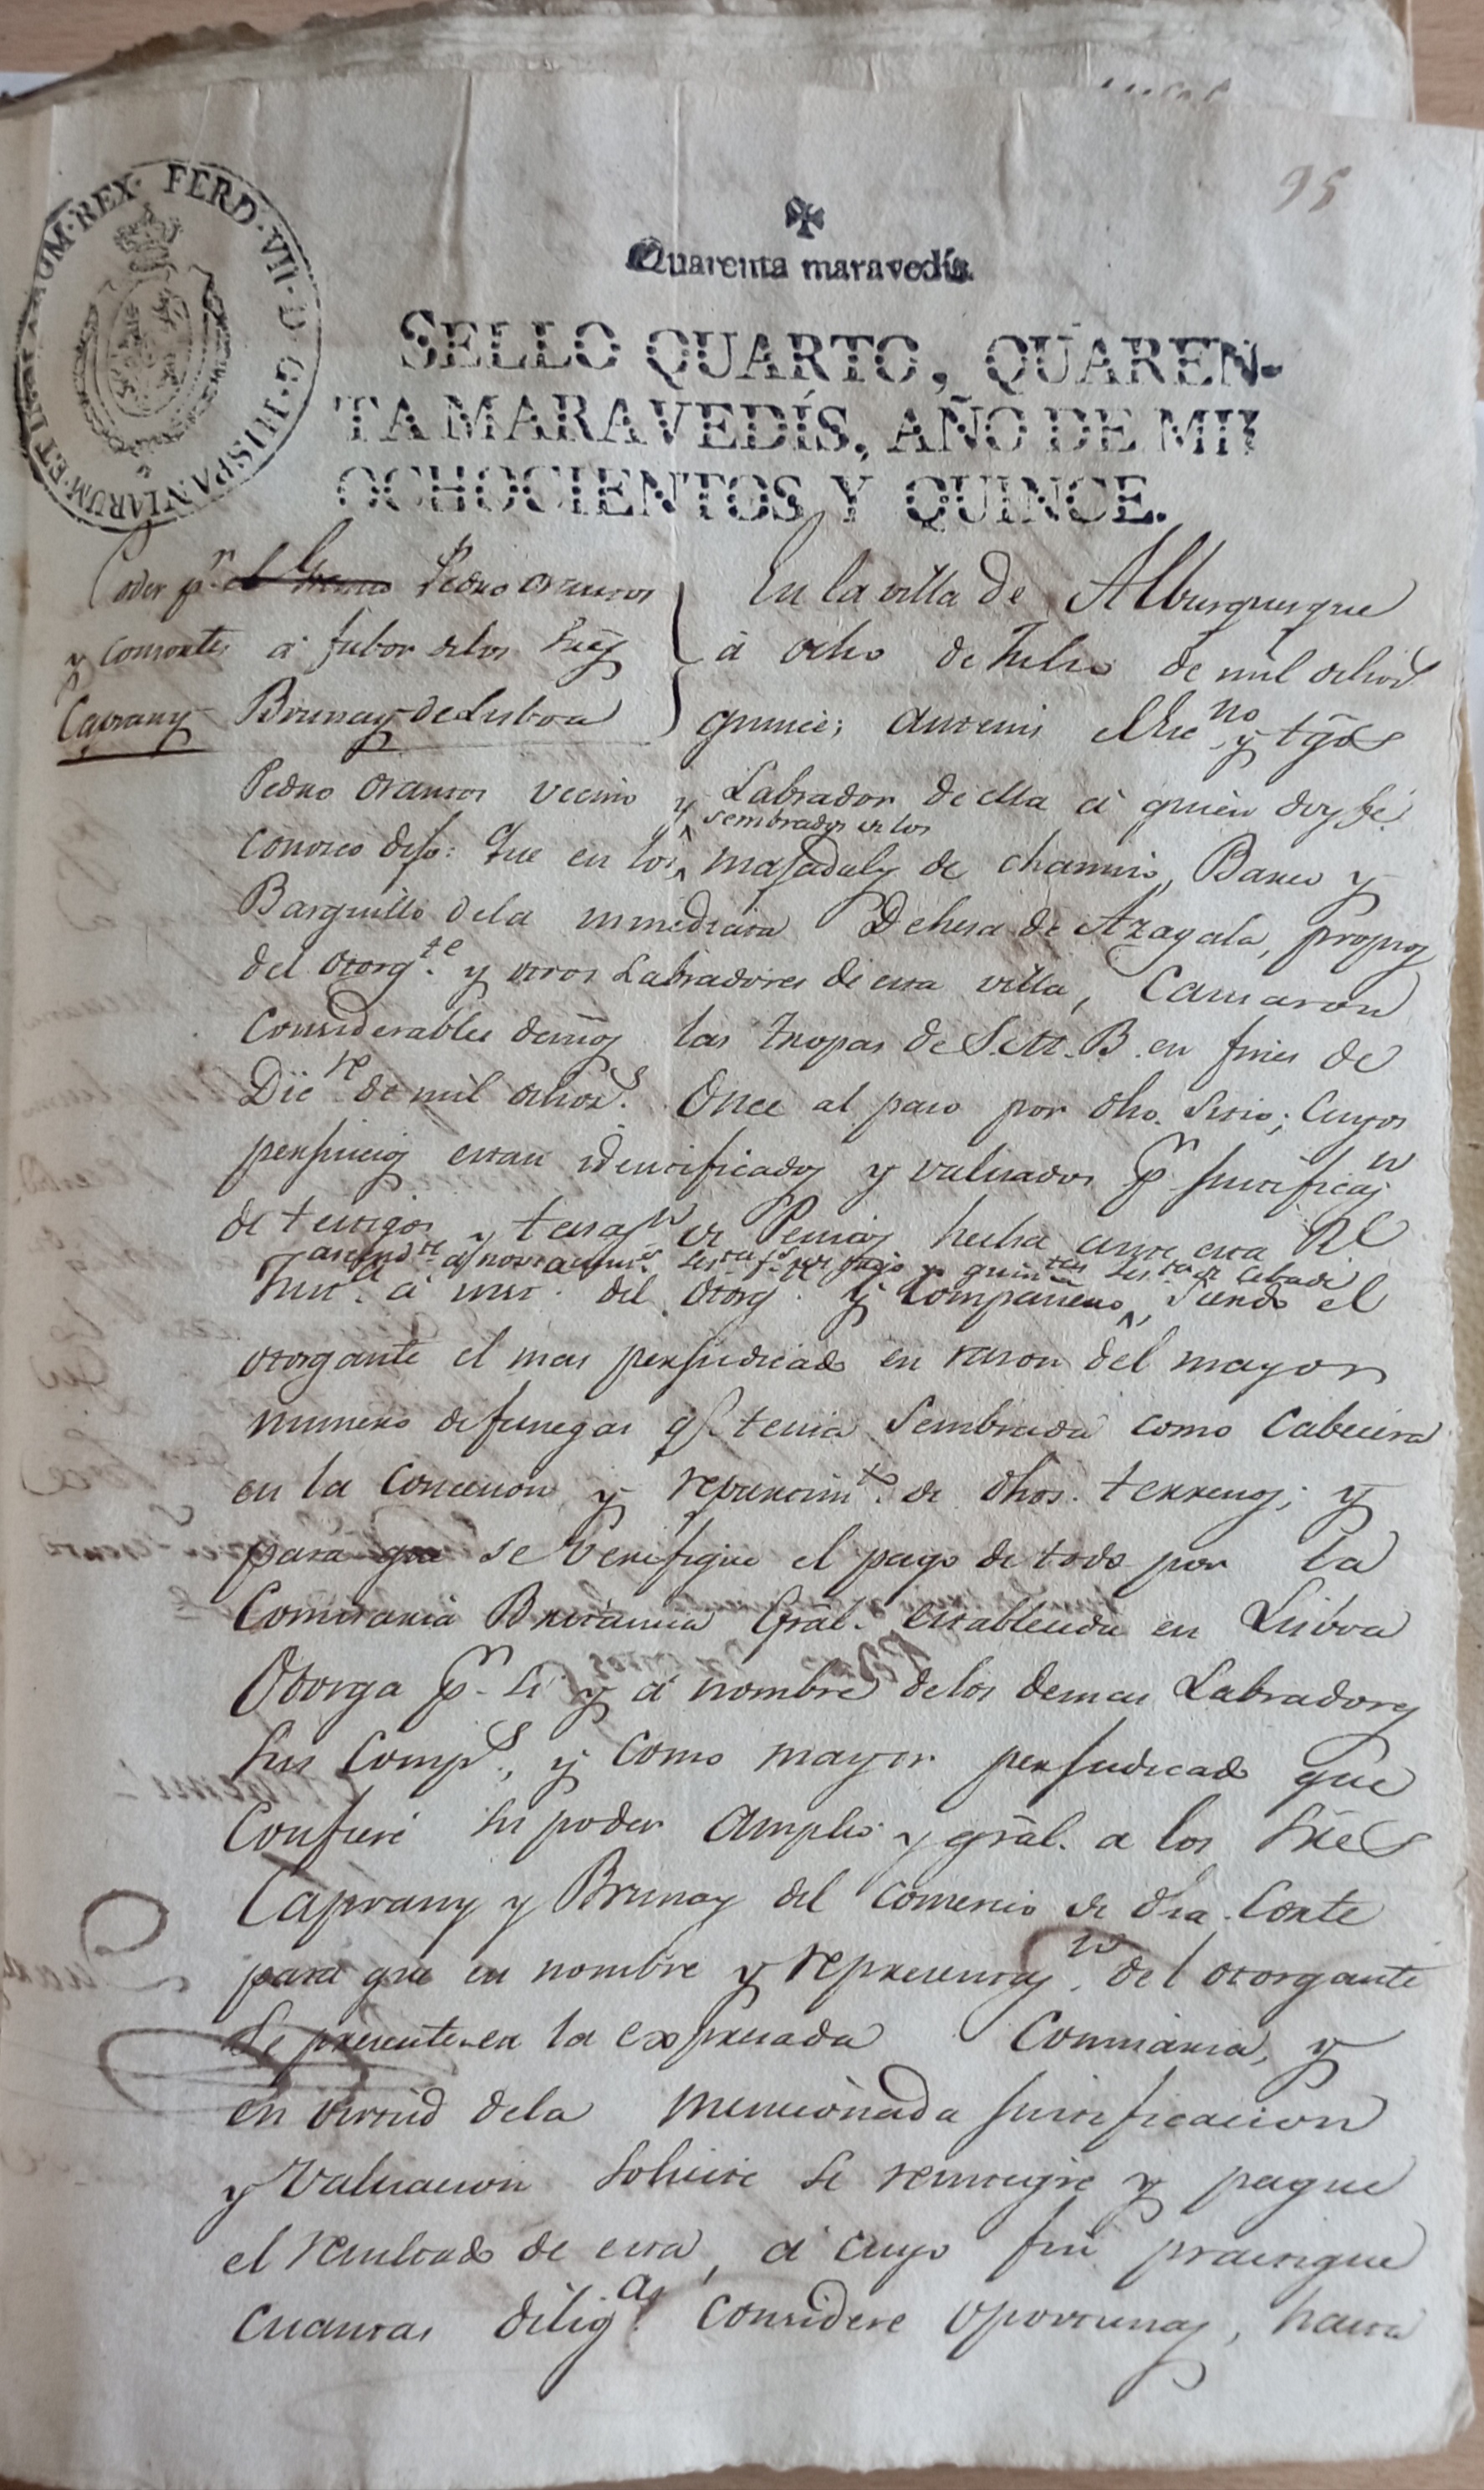 95
FERD·VII·D·G·HISPANIARUM·ET IND REX
Quarenta maravedís.
SELLO QUARTO, QUAREN-
TA MARAVEDÍS, AÑO DE MIL
OCHOCIENTOS Y QUINCE.
Poder pr. Pedro Orantos
y consortes à fabor delos Sres
Caprany Brunay de Lisboa
En la villa de Alburquerque
à ocho de Julio de mil ochos.
quince; ante mi el Ssno y tgos
Pedro Orantos vecino y Labrador de ella à quien doy fe
conozco dijo: Que en los masadales de chamiso, Barco y
sembrados de los
Barquillo dela inmediata Dehesa de Azagala, propios
del otorgte. y otros Labradores de esta villa, causaron
considerables daños las tropas de S.M.B. en fines de
Dicre. de mil ochos. Once al paso por dho. sitio; cuyos
perjuicios estan identificados y valuados pr. justificaon
de testigos y tasaon de Peritos hecha ante esta Rl
Justa. à inst. del otorgte. y Compañeros, siendo el
otorgante el mas perjudicado en rason del mayor
numero de fanegas qe. tenia sembrada como cabecera
en la concesion y repartimto. de dhos. terrenos; y
para que se verifique el pago de todo por la
Comisaria Britanica Gral. establecida en Lisboa
Otorga pr. si y à nombre delos demas Labradores
sus comps., y como mayor perjudicado que
confiere su poder amplio y gral. a los Sres
Caprany y Brunay del comercio de dha. Corte
para que en nombre y representaon. del otorgante
se presenten en la expresada Comisaria, y
en virtud dela mencionada justificacion
y valuacion solicite se reintegre y pague
el resultado de esta, à cuyo fin practique
cuantas diligas. considere oportunas, hasta